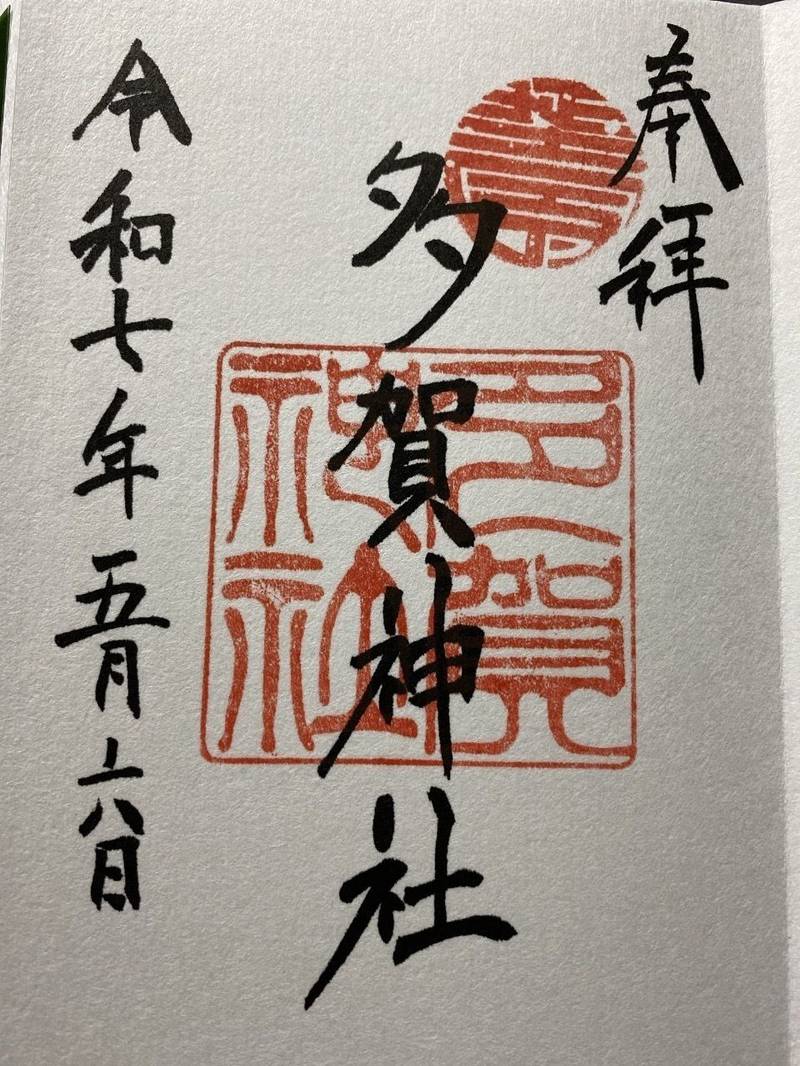 奉拝
多賀神社
多賀神社
令和七年五月六日